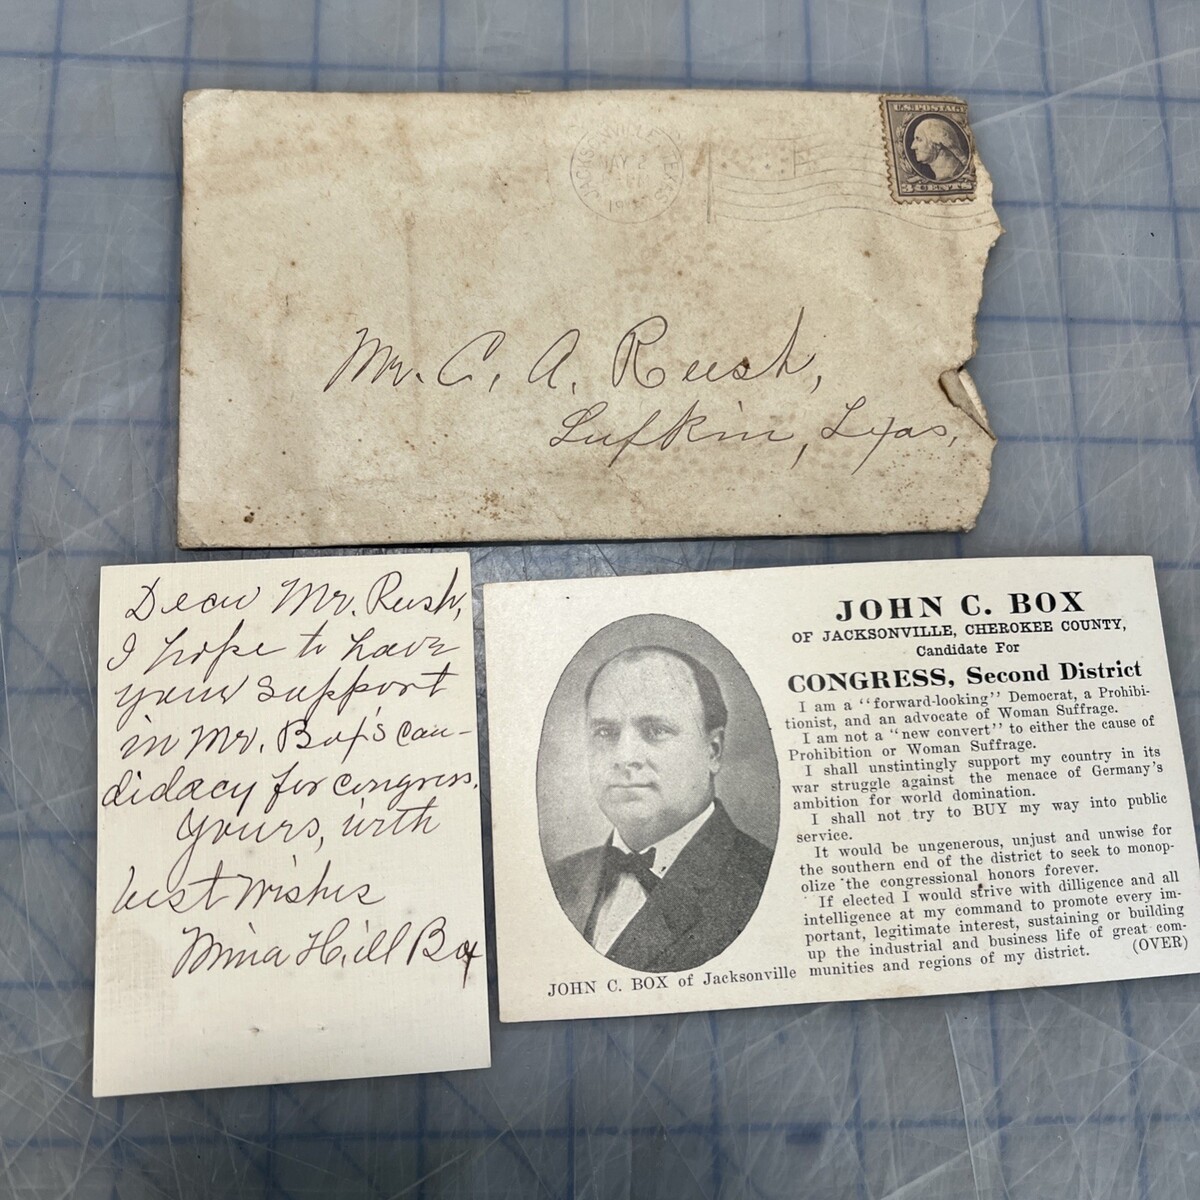 JACKSONVILLE TEXAS
MAY 2
U.S. POSTAGE
3 CENTS
Mr. C. A. Rush,
Lufkin, Texas,
Dear Mr. Rush,
I hope to have
your support
in Mr. Box's can-
didacy for congress.
Yours, with
best wishes
Mina Hill Box
JOHN C. BOX
OF JACKSONVILLE, CHEROKEE COUNTY,
Candidate For
CONGRESS, Second District
I am a "forward-looking" Democrat, a Prohibi-
tionist, and an advocate of Woman Suffrage.
I am not a "new convert" to either the cause of
Prohibition or Woman Suffrage.
I shall unstintingly support my country in its
war struggle against the menace of Germany's
ambition for world domination.
I shall not try to BUY my way into public
service.
It would be ungenerous, unjust and unwise for
the southern end of the district to seek to monop-
olize the congressional honors forever.
If elected I would strive with dilligence and all
intelligence at my command to promote every im-
portant, legitimate interest, sustaining or building
up the industrial and business life of great com-
munities and regions of my district. (OVER)
JOHN C. BOX of Jacksonville